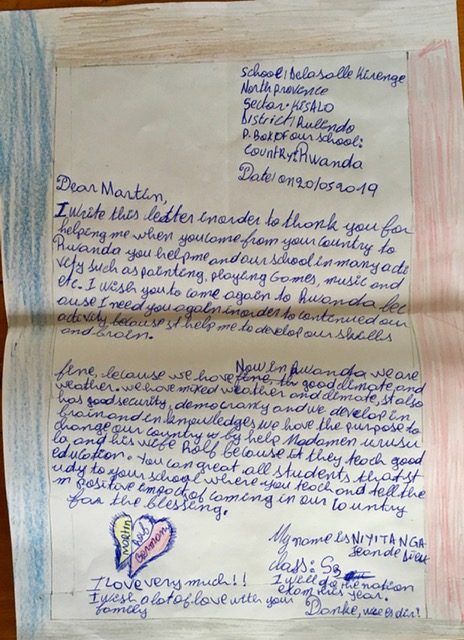 School: Delasalle Kirenge
North province
Sector: KISALO
District: Rulindo
P. Box: of our school:
Country: Rwanda
Date: on 20/05 2019
Dear Martin,
I write this letter inorder to thank you for
helping me when you come from your country to
Rwanda you help me and our school in many acti
vity such as painting, playing Games, music and
etc. I wish you to come again to Rwanda bec
ause I need you again inorder to continued our
activity because it help me to develop our skills
and brain.
Now in Rwanda we are
fine, because we have fine, the good climate, and
weather. we have mixed weather and climate, it also
has good security, democracy and we develop in
brain and in knowledges we have the purpose to
change our country is by help Madamen ursu
la and his wife Rolf because it they teach good
education. You can great all students that st
udy to your school where you teach and tell the
m positive impact of coming in our country
for the blessing.
Martin
Rolf
German
My name is NIYITANGA
Jean de Dieu
class: S3
I love very much!!
I will do the nation
exam this year.
I wish a lot of love with your
family
Danke,